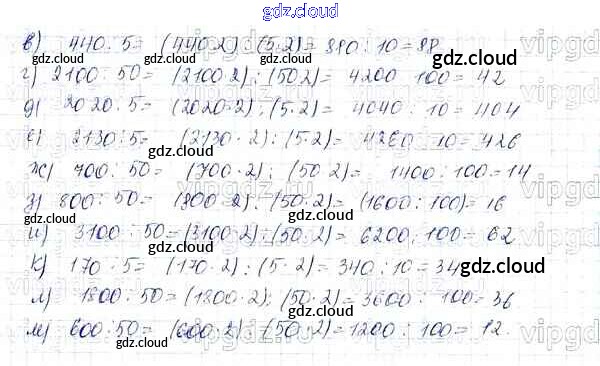 gdz.cloud
в) 440 : 5 = (440·2) : (5·2) = 880 : 10 = 88
gdz.cloud
г) 2100 : 50 = (2100·2) : (50·2) = 4200 : 100 = 42
gdz.cloud gdz.cloud
д) 2020 : 5 = (2020·2) : (5·2) = 4040 : 10 = 404
е) 2130 : 5 = (2130·2) : (5·2) = 4260 : 10 = 426
gdz.cloud gdz.cloud
ж) 700 : 50 = (700·2) : (50·2) = 1400 : 100 = 14
з) 800 : 50 = (800·2) : (50·2) = (1600 : 100) = 16
gdz.cloud gdz.cloud
и) 3100 : 50 = (3100·2) : (50·2) = 6200 : 100 = 62
к) 170 : 5 = (170·2) : (5·2) = 340 : 10 = 34
gdz.cloud gdz.cloud
л) 1800 : 50 = (1800·2) : (50·2) = 3600 : 100 = 36
м) 600 : 50 = (600·2) : (50·2) = 1200 : 100 = 12.
gdz.cloud gdz.cloud